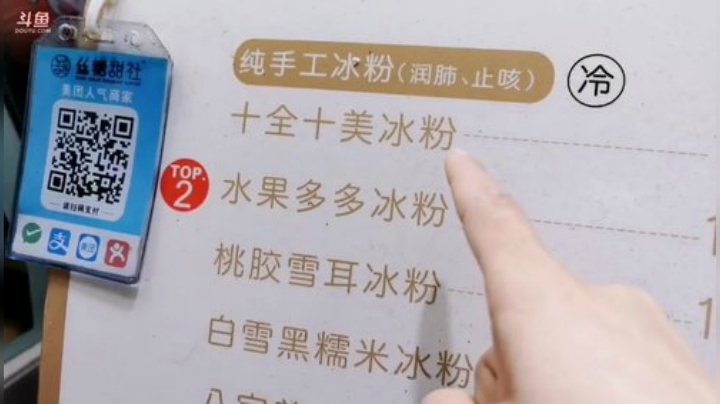 斗鱼
DOUYU.COM
丝糖甜社
美团人气商家
请扫码支付
纯手工冰粉(润肺、止咳)
冷
十全十美冰粉
TOP.
2
水果多多冰粉
1
桃胶雪耳冰粉
1
白雪黑糯米冰粉